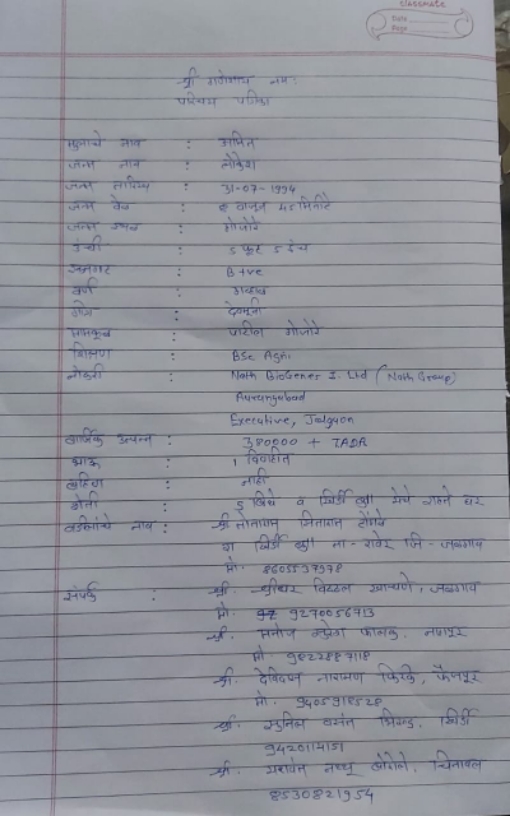 classmate
Date
Page
श्री गणेशाय नमः
परिचय पत्रिका
मुलाचे नाव : अमित
जन्म नाव : लोकेश
जन्म तारिख : 31-07-1994
जन्म वेळ : वाजून 45 मिनीटे
जन्म स्थळ : भोजोरे
उंची : 5 फूट 5 इंच
रक्तगट : B +ve
वर्ण :
गोत्र :
मामकूळ : पाटील भोजोरे
शिक्षण : BSc Agri.
नोकरी : Nath BioGenes I. Ltd (Nath Group)
Aurangabad
Executive, Jalgaon
वार्षिक उत्पन्न : 380000 + TADA
भाऊ : 1 विवाहीत
बहिण : नाही
शेती : 5 बिघे व खिर्डी बु॥ येथे राहते घर
वडीलांचे नाव : श्री तोताराम सिताराम
खिर्डी बु॥ ता - रावेर जि - जळगाव
मो. 8605537978
संपर्क : श्री. श्रीधर विठ्ठल, जळगाव
मो. 9270056713
श्री. मनोज फालक, नागपूर
मो. 9822887118
श्री. देविदास नारायण फिरके, फैजपूर
मो. 9405918528
श्री. सुनिल वसंत भिरुड, खिर्डी
9420114151
श्री. यशवंत नथ्थू बोरोले, चिनावल
8530821954